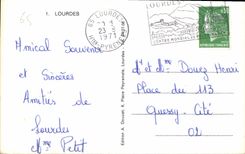 65
1. LOURDES
65 LOURDES
23-5
1971
HTES PYRENEES
LOURDES
Amical Souvenir
et Sincères
Amitiés de
Lourdes
Mme Petit
Edition A. Doucet, 6, Place Peyramale, Lourdes
Mr et Mme Douez Henri
Place du 113
Quessy-Cité
02